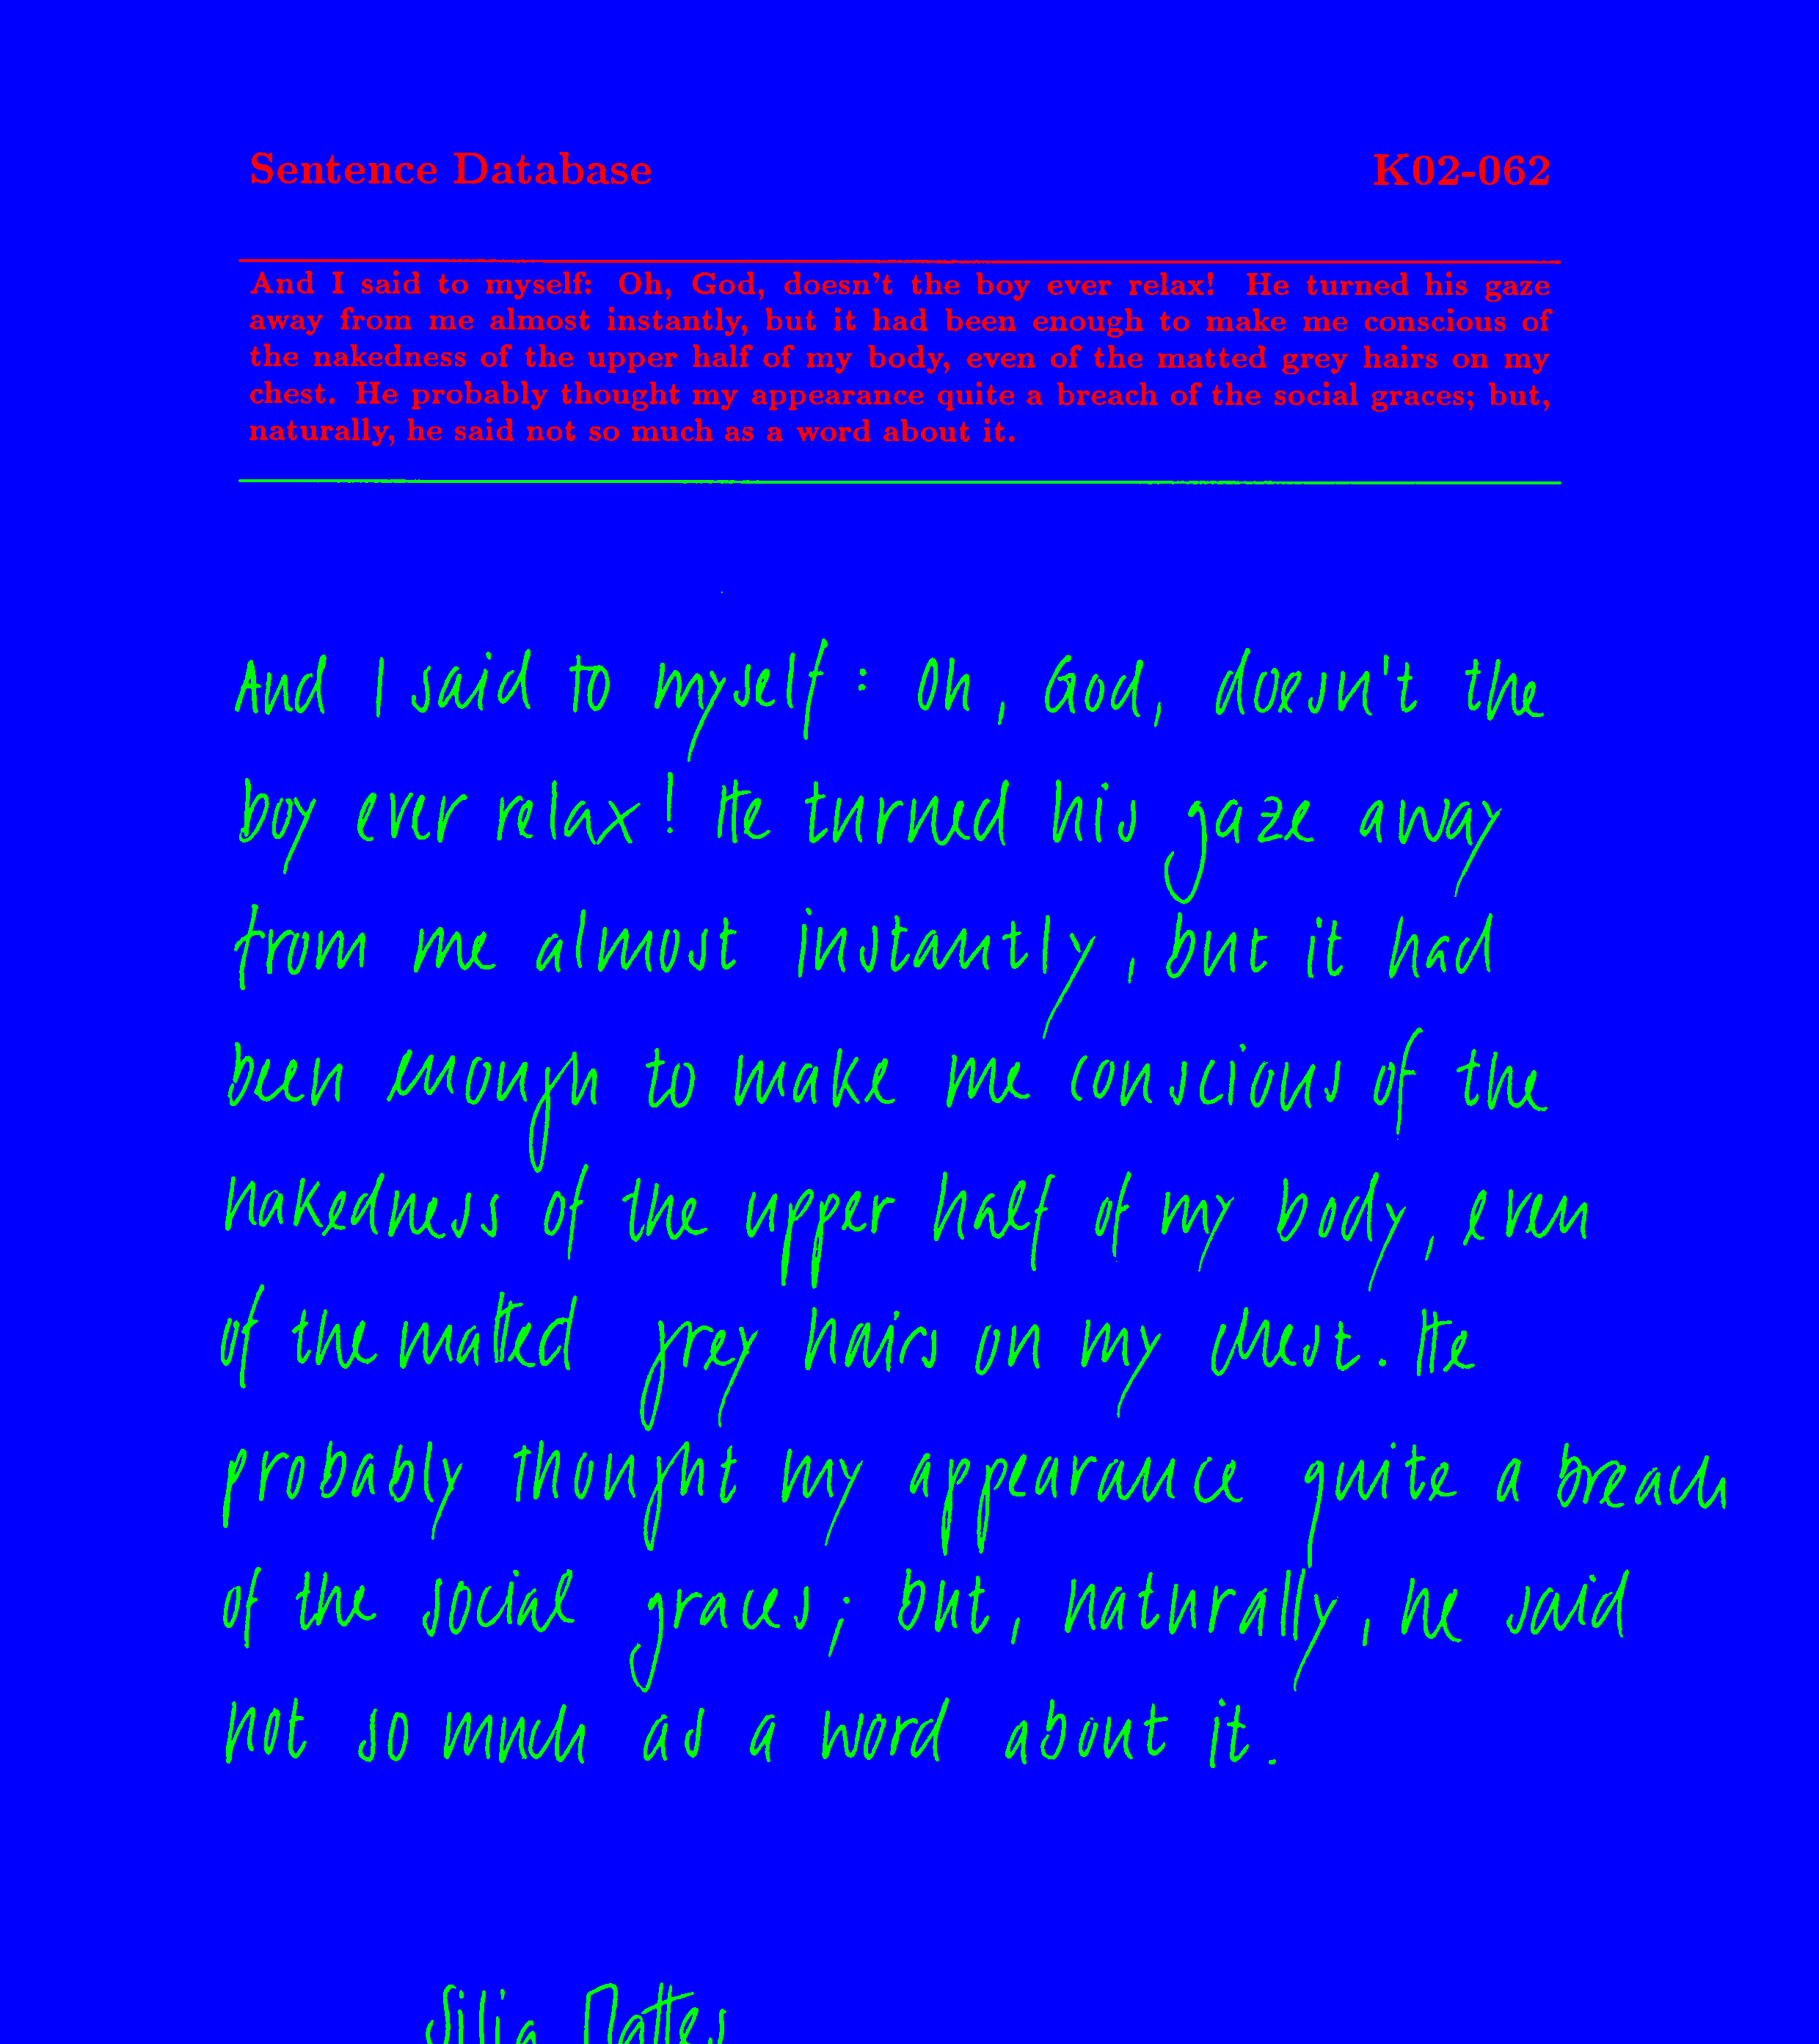 Sentence Database K02-062
And I said to myself: Oh, God, doesn't the boy ever relax! He turned his gaze
away from me almost instantly, but it had been enough to make me conscious of
the nakedness of the upper half of my body, even of the matted grey hairs on my
chest. He probably thought my appearance quite a breach of the social graces; but,
naturally, he said not so much as a word about it.
And I said to myself : Oh, God, doesn't the
boy ever relax! He turned his gaze away
from me almost instantly, but it had
been enough to make me conscious of the
nakedness of the upper half of my body, even
of the matted grey hairs on my chest. He
probably thought my appearance quite a breach
of the social graces; but, naturally, he said
not so much as a word about it.
Silja Mattes